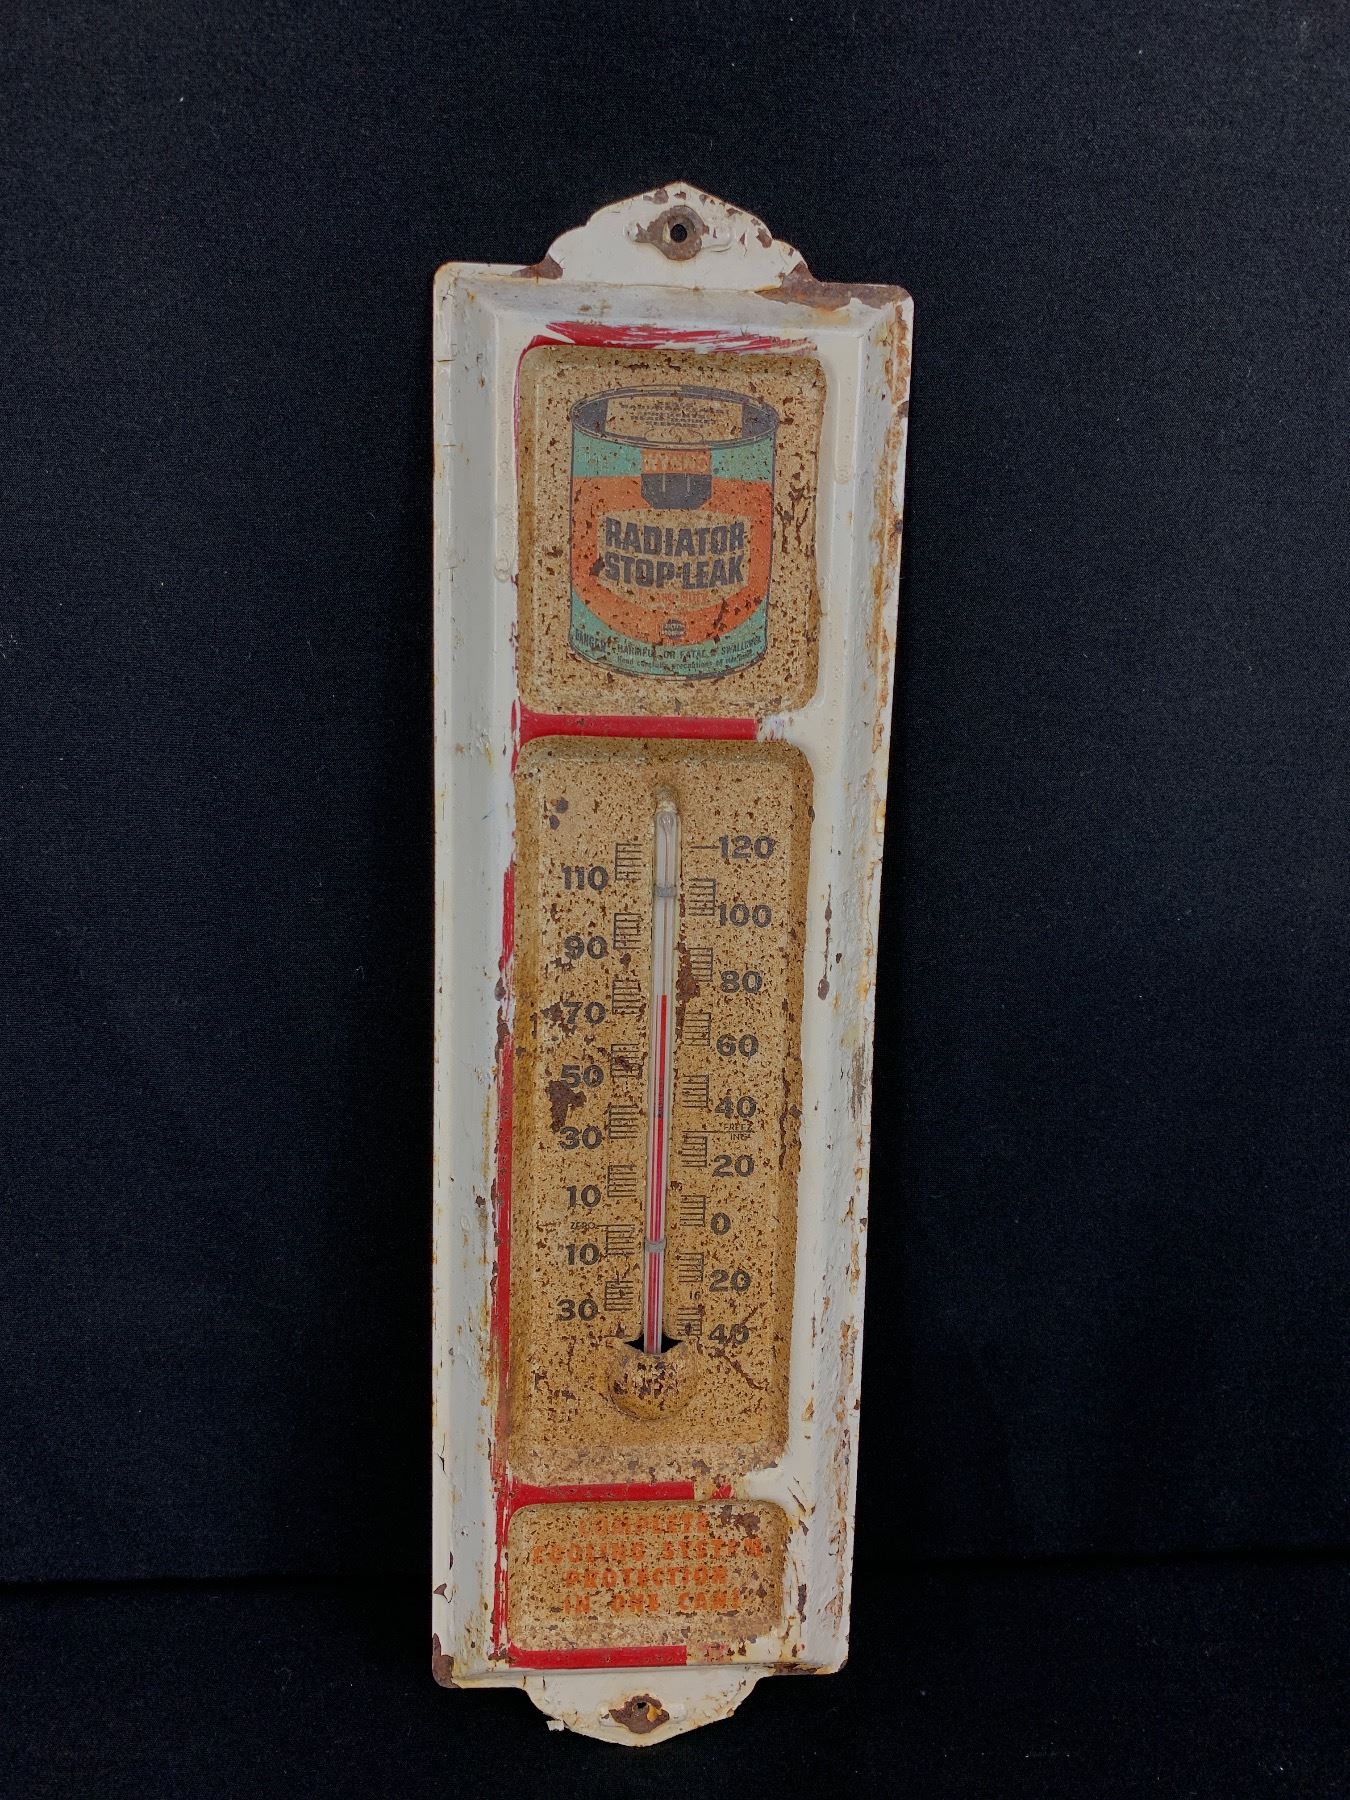 RADIATOR
STOP-LEAK
DANGER - HARMFUL OR FATAL IF SWALLOWED
Read carefully precautions on
120
110
100
90
80
70
60
50
40
FREEZ
ING
30
20
10
0
ZERO
10
20
30
40
COMPLETE
COOLING SYSTEM
PROTECTION
IN ONE CAN!